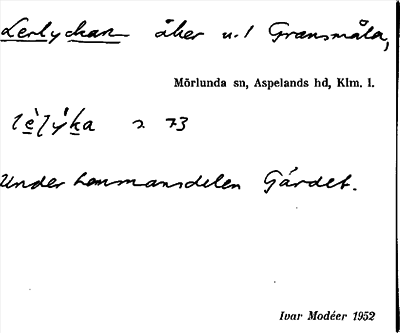 Lerlyckan åker u. 1 Gransmåla,
Mörlunda sn, Aspelands hd, Klm. l.
73
Under hemmansdelen Gärdet.
Ivar Modéer 1952